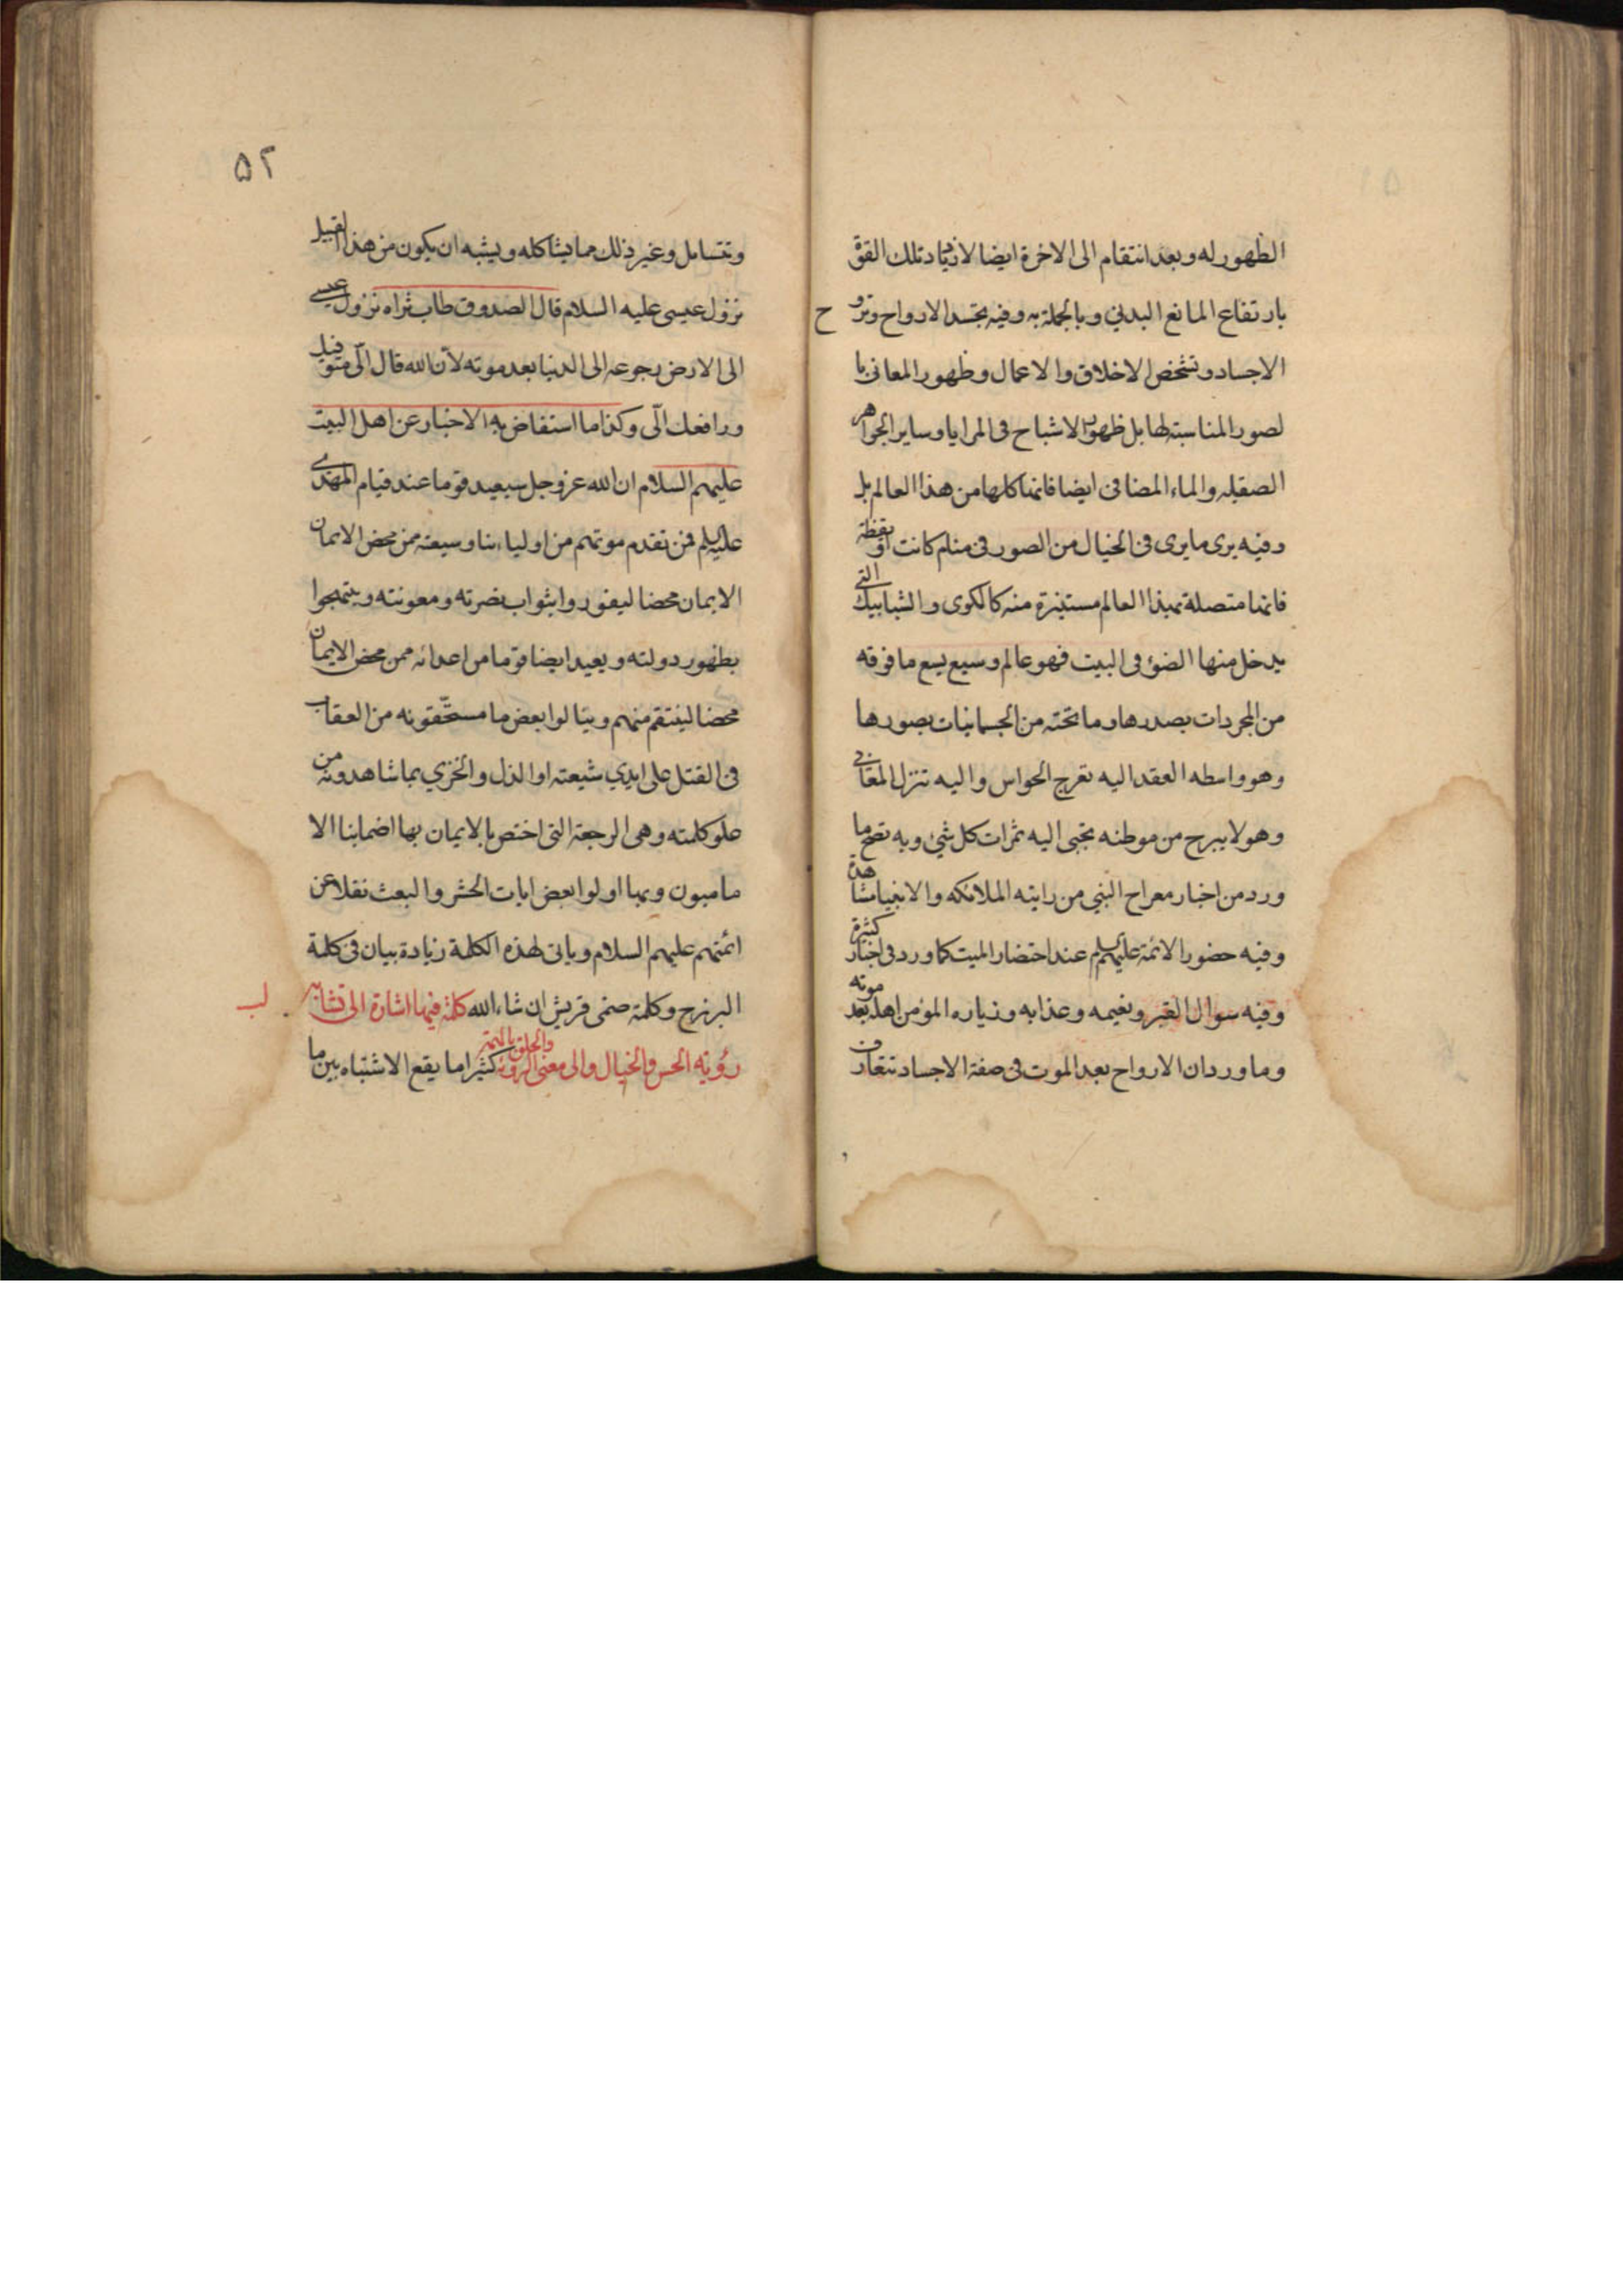 الظهور له وبعد انتقام الى الاخرة ايضا لازدياد تلك القوة
بارتفاع المانع البدني وبالجملة به وفيه تجسد الارواح وتروح
الاجساد وتشخص الاخلاق والاعمال وظهور المعانى با
لصور المناسبة لها بل ظهور الاشباح فى المرايا وساير الجواهر
الصقيله والماء الصافى ايضا فانما كلها من هذا العالم بل
وفيه يرى ما يرى فى الخيال من الصور فى منام كانت او يقظة
فانما متصلة بهذا العالم مستنيرة منه كالكوى والشبابيك التى
يدخل منها الضوء فى البيت فهو عالم وسيع يسع ما فوقه
من المجردات بصدرها وما تحته من الجسمانيات بصورها
وهو واسطه العقد اليه تعرج الحواس واليه تنزل المعانى
وهو لا يبرح من موطنه تجبى اليه ثمرات كل شئ وبه تصح ما
ورد من اخبار معراج النبي من رايته الملائكه والانبيا مشاهدة
وفيه حضور الائمة عليهم عند احتضار الميت كما ورد فى اخبار كثيرة
وفيه سوال القبر ونعيمه وعذابه وزياره المؤمن اهله بعد موته
وما ورد ان الارواح بعد الموت فى صفة الاجساد تتعارف
۵۲
وتتسائل وغير ذلك مما يشاكله ويشبه ان يكون من هذا القبيل
نزول عيسى عليه السلام قال الصدوق طاب ثراه نزول عيسى
الى الارض رجوعه الى الدنيا بعد موته لان الله قال انى متوفيك
ورافعك الىّ وكذا ما استفاض به الاخبار عن اهل البيت
عليهم السلام ان الله عز وجل سيعيد قوما عند قيام المهدى
عليه فمن تقدم موتهم من اوليائنا وسيعته ممن محض الايمان
الايمان محضا ليفوروا بثواب نصرته ومعونته ويبتهجوا
بظهور دولته ويعيد ايضا قوما من اعدائه ممن محض الايمان
محضا لينتقم منهم وينالوا بعض ما مستحقونه من العقاب
فى القتل على ايدي شيعته او الذل والخزي بما شاهدونه من
علو كلمته وهى الرجعة التى اختص بالايمان بها اصحابنا الا
ماميون وبها اولوا بعض ايات الحشر والبعث نقلا عن
ائمتهم عليهم السلام وياتى لهذه الكلمة زيادة بيان فى كلمة
البرزخ وكلمة صنمى قريش ان شاء الله كلمة فيها اشارة الى تشابه
لب
رؤيه الحس والخيال والى معنى الرؤية كثيرا ما يقع الاشتباه بين ما